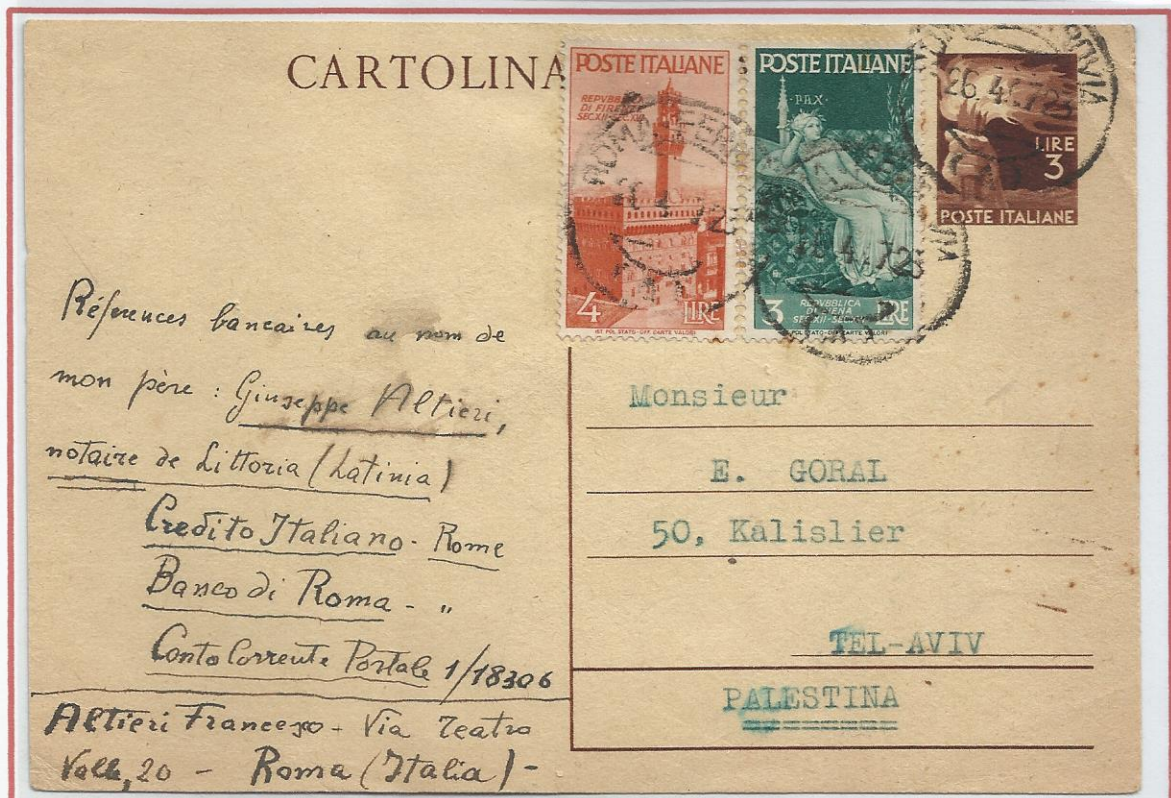 CARTOLINA
POSTE ITALIANE
REPVBBLICA
DI FIRENZE
SEC XII-SEC XVI
4 LIRE
IST. POL. STATO-OFF. CARTE VALORI
POSTE ITALIANE
PAX
REPVBBLICA
DI SIENA
3 LIRE
POL. STATO-OFF. CARTE VALORI
LIRE
3
POSTE ITALIANE
ROMA FERROVIA
26.4.47.23
Références bancaires au nom de
mon père : Giuseppe Altieri,
notaire de Littoria (Latinia)
Credito Italiano - Rome
Banco di Roma - "
Conto Corrente Postale 1/18306
Altieri Francesco - Via Teatro
Valle, 20 - Roma (Italia) -
Monsieur
E. GORAL
50, Kalislier
TEL-AVIV
PALESTINA